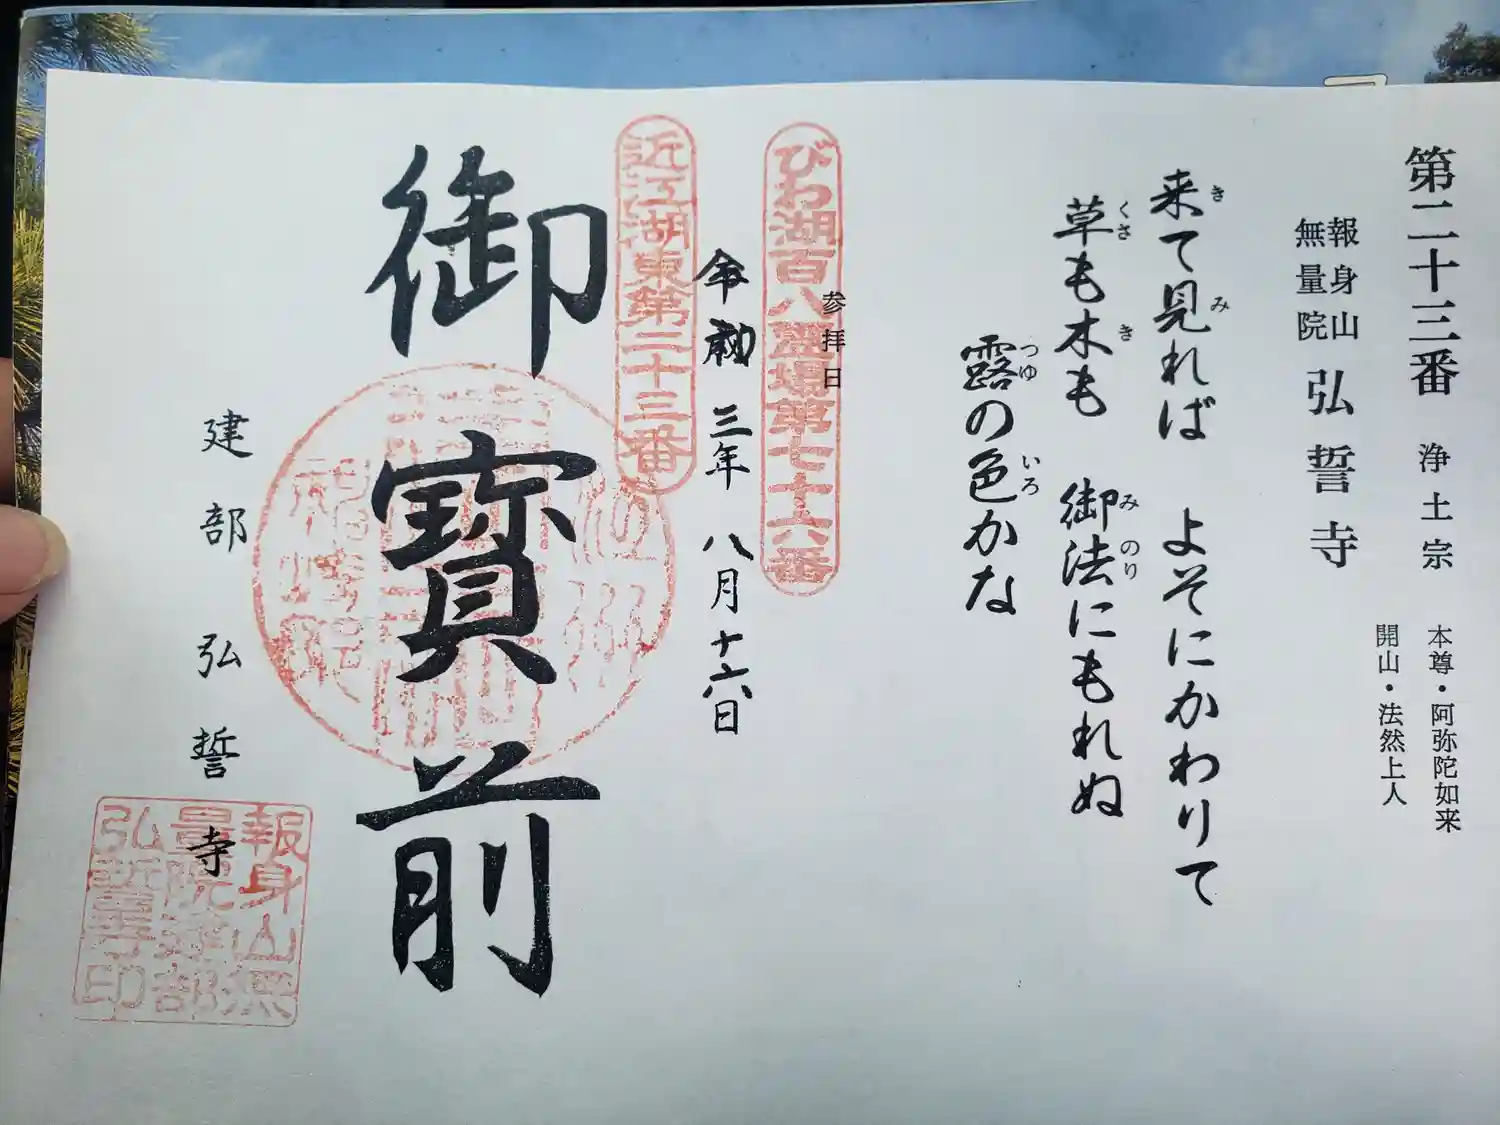 第二十三番 浄土宗
本尊・阿弥陀如来
開山・法然上人
報身山
無量院
弘誓寺
来て見れば よそにかわりて
草も木も 御法にもれぬ
露の色かな
参拝日
びわ湖百八霊場第七十六番
令和三年 八月十六日
近江湖東第二十三番
御寳前
建部弘誓寺
報身山無
量院建部
弘誓寺印